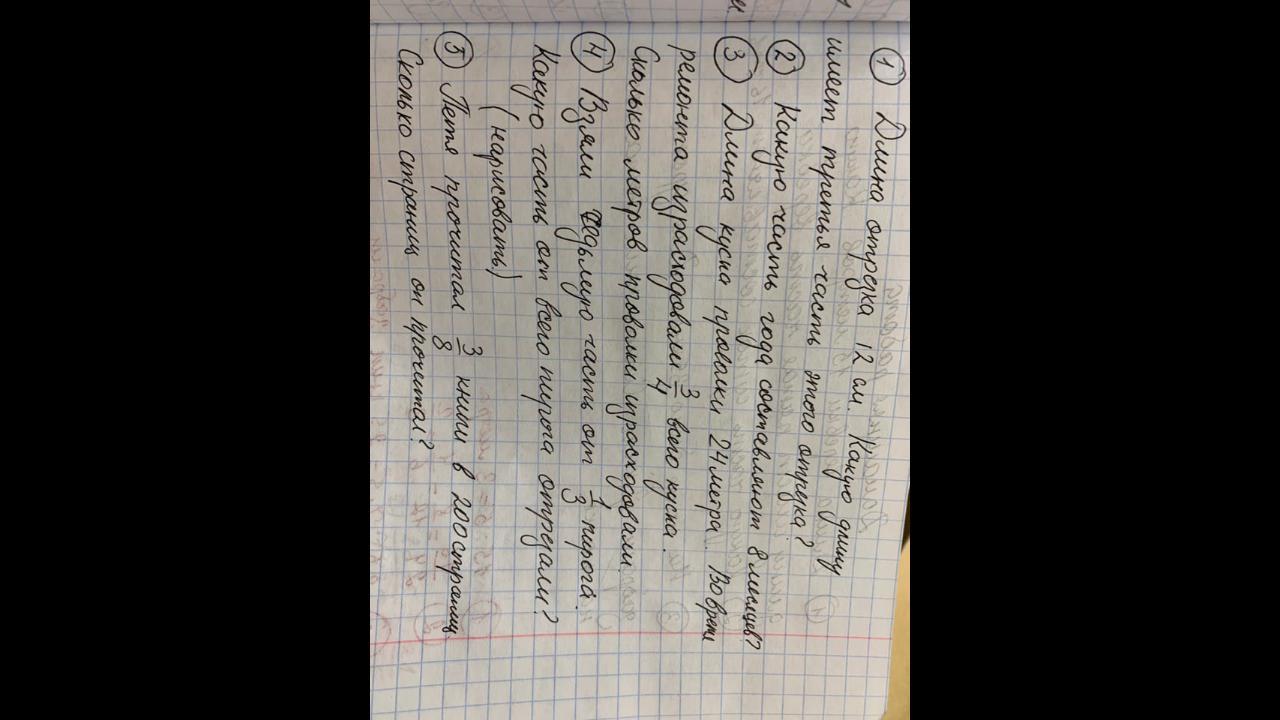 ① Длина отрезка 12 см. Какую длину
имеет третья часть этого отрезка?
② Какую часть года составляют 8 месяцев?
③ Длина куска проволки 24 метра. Во время
ремонта израсходовали 3/4 всего куска.
Сколько метров проволки израсходовали.
④ Взяли седьмую часть от 1/3 пирога.
Какую часть от всего пирога отрезали?
(нарисовать)
⑤ Петя прочитал 3/8 книги в 200 страниц
Сколько страниц он прочитал?